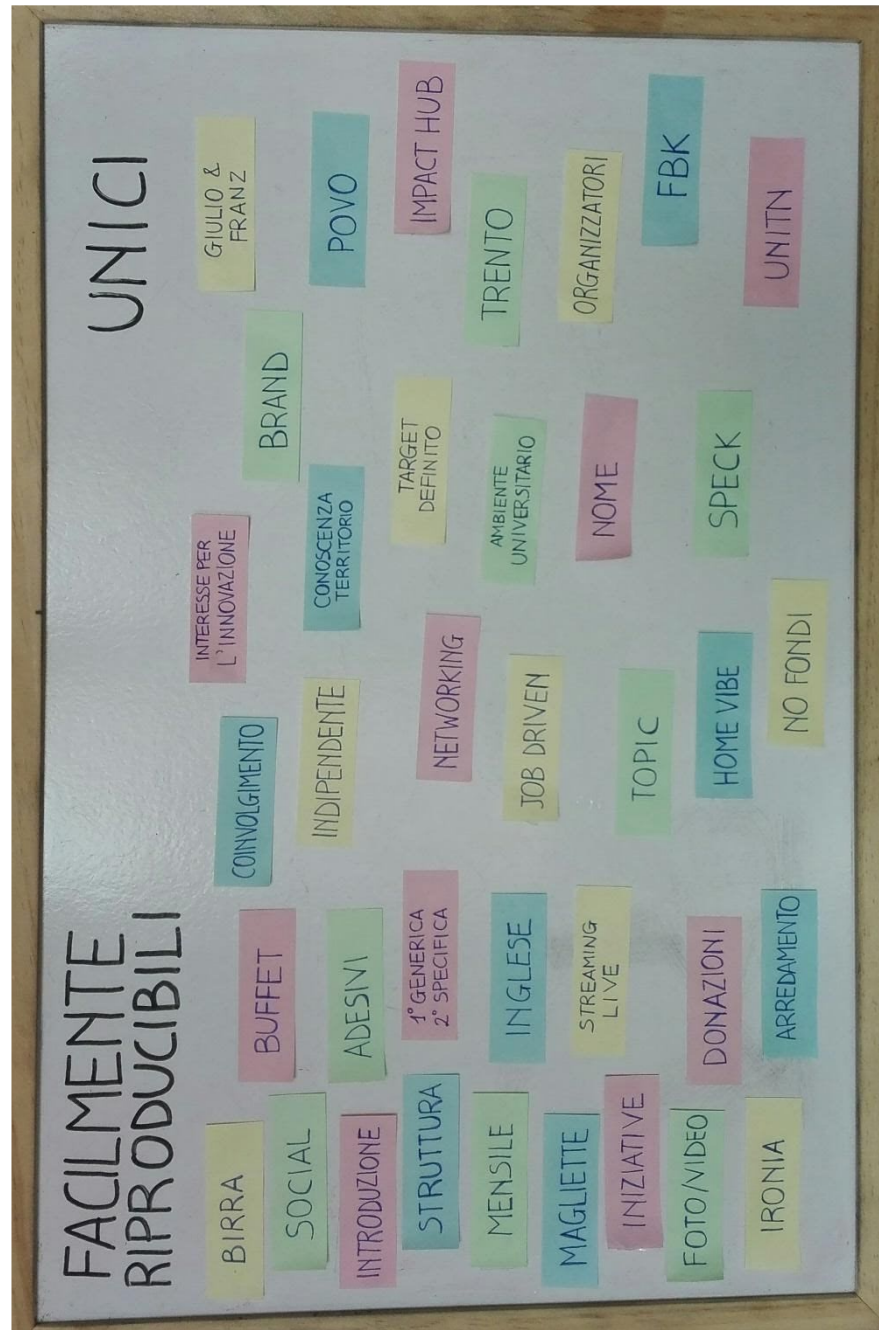 FACILMENTE
RIPRODUCIBILI
UNICI
BIRRA
SOCIAL
INTRODUZIONE
STRUTTURA
MENSILE
MAGLIETTE
INIZIATIVE
FOTO/VIDEO
IRONIA
BUFFET
ADESIVI
1° GENERICA
2° SPECIFICA
INGLESE
STREAMING
LIVE
DONAZIONI
ARREDAMENTO
COINVOLGIMENTO
INDIPENDENTE
NETWORKING
JOB DRIVEN
TOPIC
HOME VIBE
NO FONDI
INTERESSE PER
L'INNOVAZIONE
CONOSCENZA
TERRITORIO
BRAND
TARGET
DEFINITO
AMBIENTE
UNIVERSITARIO
NOME
SPECK
GIULIO &
FRANZ
POVO
IMPACT HUB
TRENTO
ORGANIZZATORI
FBK
UNITN